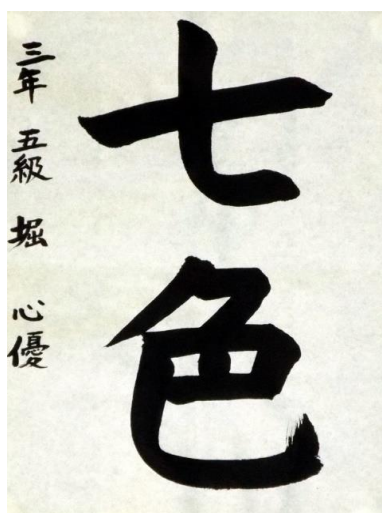 七色
三年 五級 堀 心優